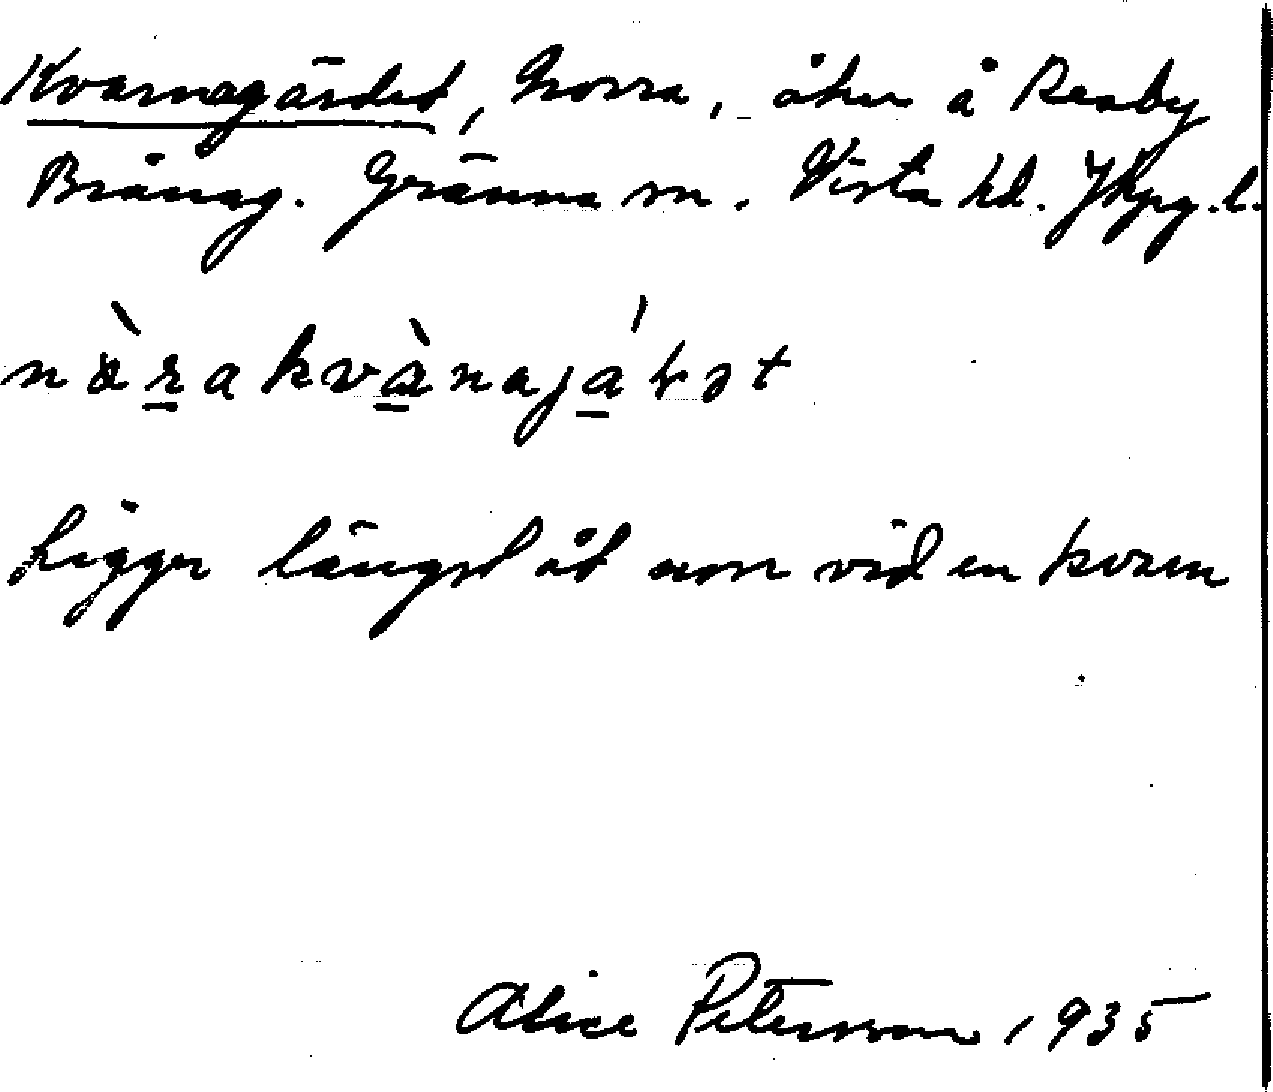 Kvarnagärdet, Norra, åker å Reaby
Brånag. Gränna sn. Vista hd. Jkpg. l.
nàrakvànajátət
Ligger längst åt norr vid en kvarn
Alice Petersson 1935